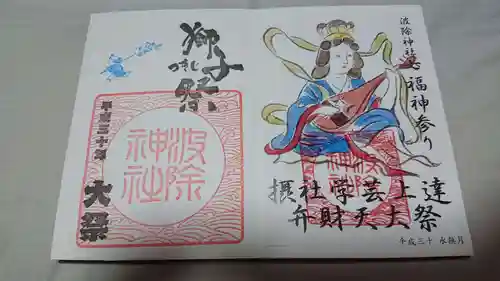 波除神社 七福神参り
摂社学芸上達
弁財天大祭
平成三十 水無月
獅子祭
つきじ
平成三十年
大祭
波除
神社